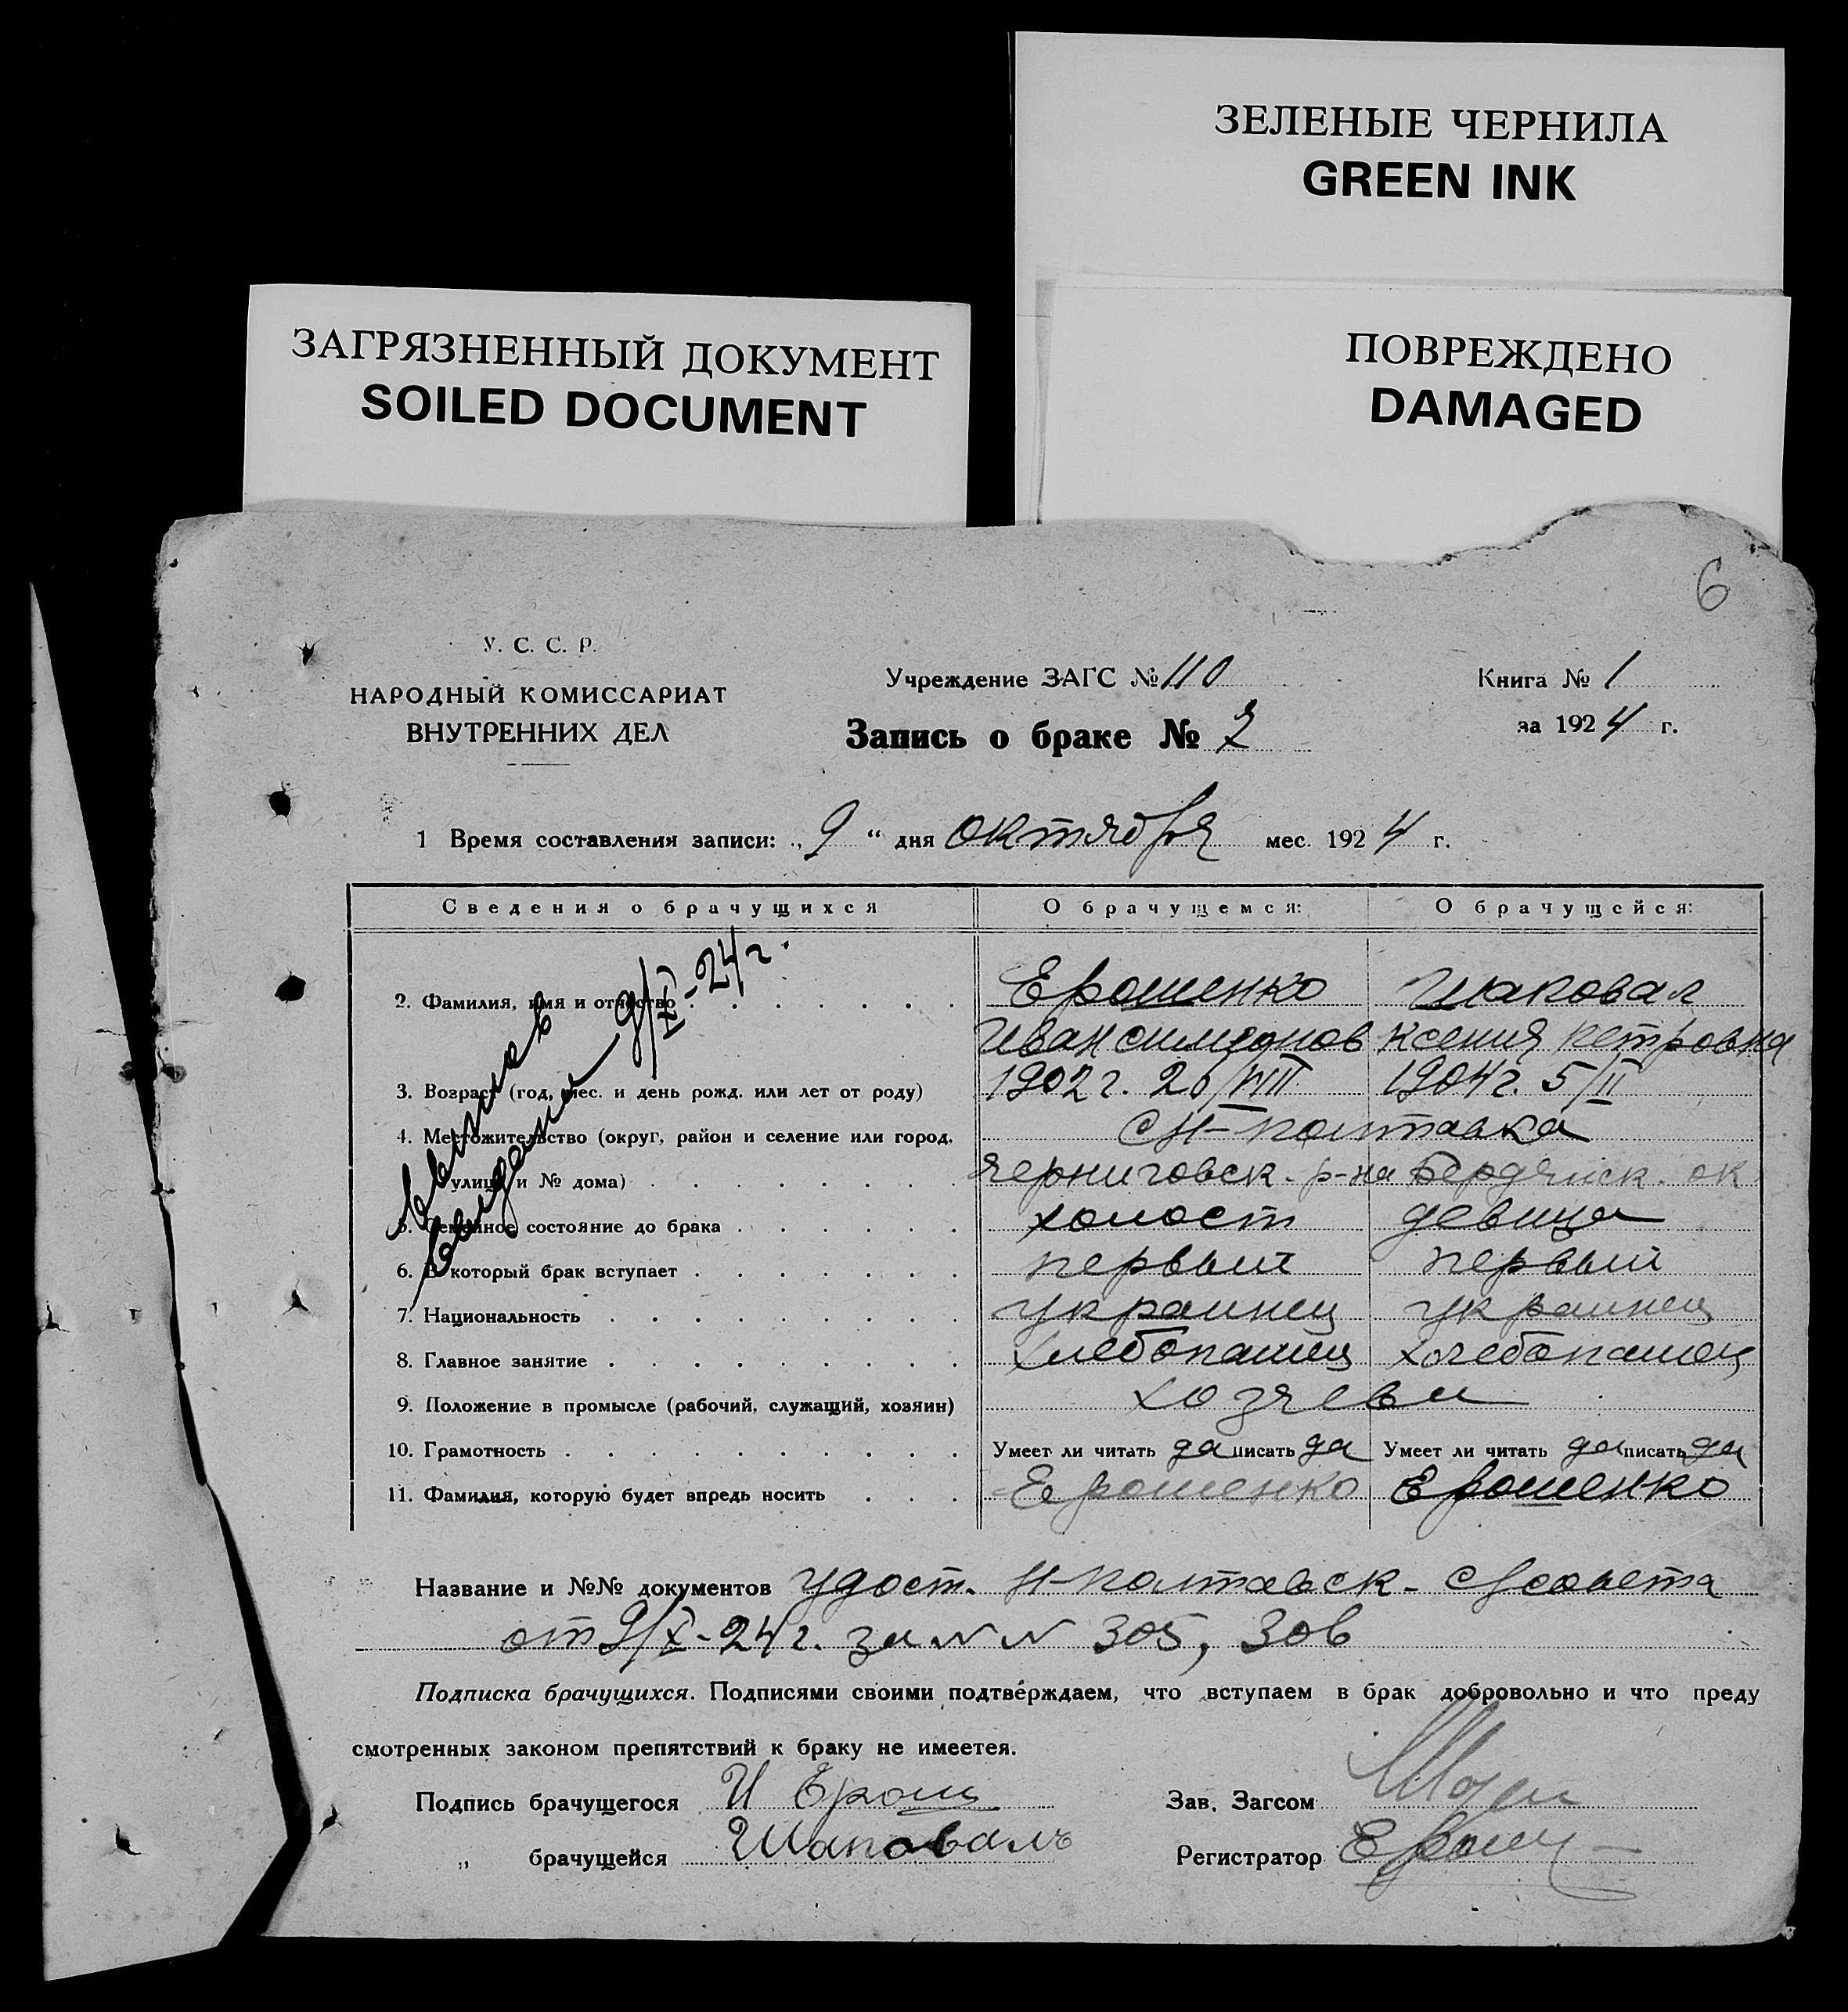 ЗЕЛЕНЫЕ ЧЕРНИЛА
GREEN INK
ЗАГРЯЗНЕННЫЙ ДОКУМЕНТ
SOILED DOCUMENT
ПОВРЕЖДЕНО
DAMAGED
6
У. С. С. Р.
НАРОДНЫЙ КОМИССАРИАТ
ВНУТРЕННИХ ДЕЛ
Учреждение ЗАГС № 110
Книга № 1
Запись о браке № 2
за 1924 г.
1 Время составления записи: „ 9 “ дня октября мес. 1924 г.
Сведения о брачущихся О брачущемся: О брачущейся:
2. Фамилия, имя и отчество Ерошенко Шаповал
Иван Симеонов Ксения Петровна
3. Возраст (год, мес. и день рожд. или лет от роду) 1902 г. 20/VIII 1904 г. 5/II
4. Местожительство (округ, район и селение или город, с Н-Полтавка
улица и № дома) Черниговск. р-на Бердянск. ок
5. Семейное состояние до брака холост девица
6. В который брак вступает первый первый
7. Национальность украинец украинец
8. Главное занятие хлебопашец хлебопашец
9. Положение в промысле (рабочий, служащий, хозяин) хозяева
10. Грамотность Умеет ли читать да писать да Умеет ли читать да писать да
11. Фамилия, которую будет впредь носить Ерошенко Ерошенко
9/XI-24 г.
Название и №№ документов удост. Н-Полтавск. с/совета
от 9/X-24 г. за N N 305, 306
Подписка брачущихся. Подписями своими подтверждаем, что вступаем в брак добровольно и что преду
смотренных законом препятствий к браку не имеется.
Подпись брачущегося И Ерош
Зав. Загсом
„ брачущейся Шаповалъ
Регистратор Ерош